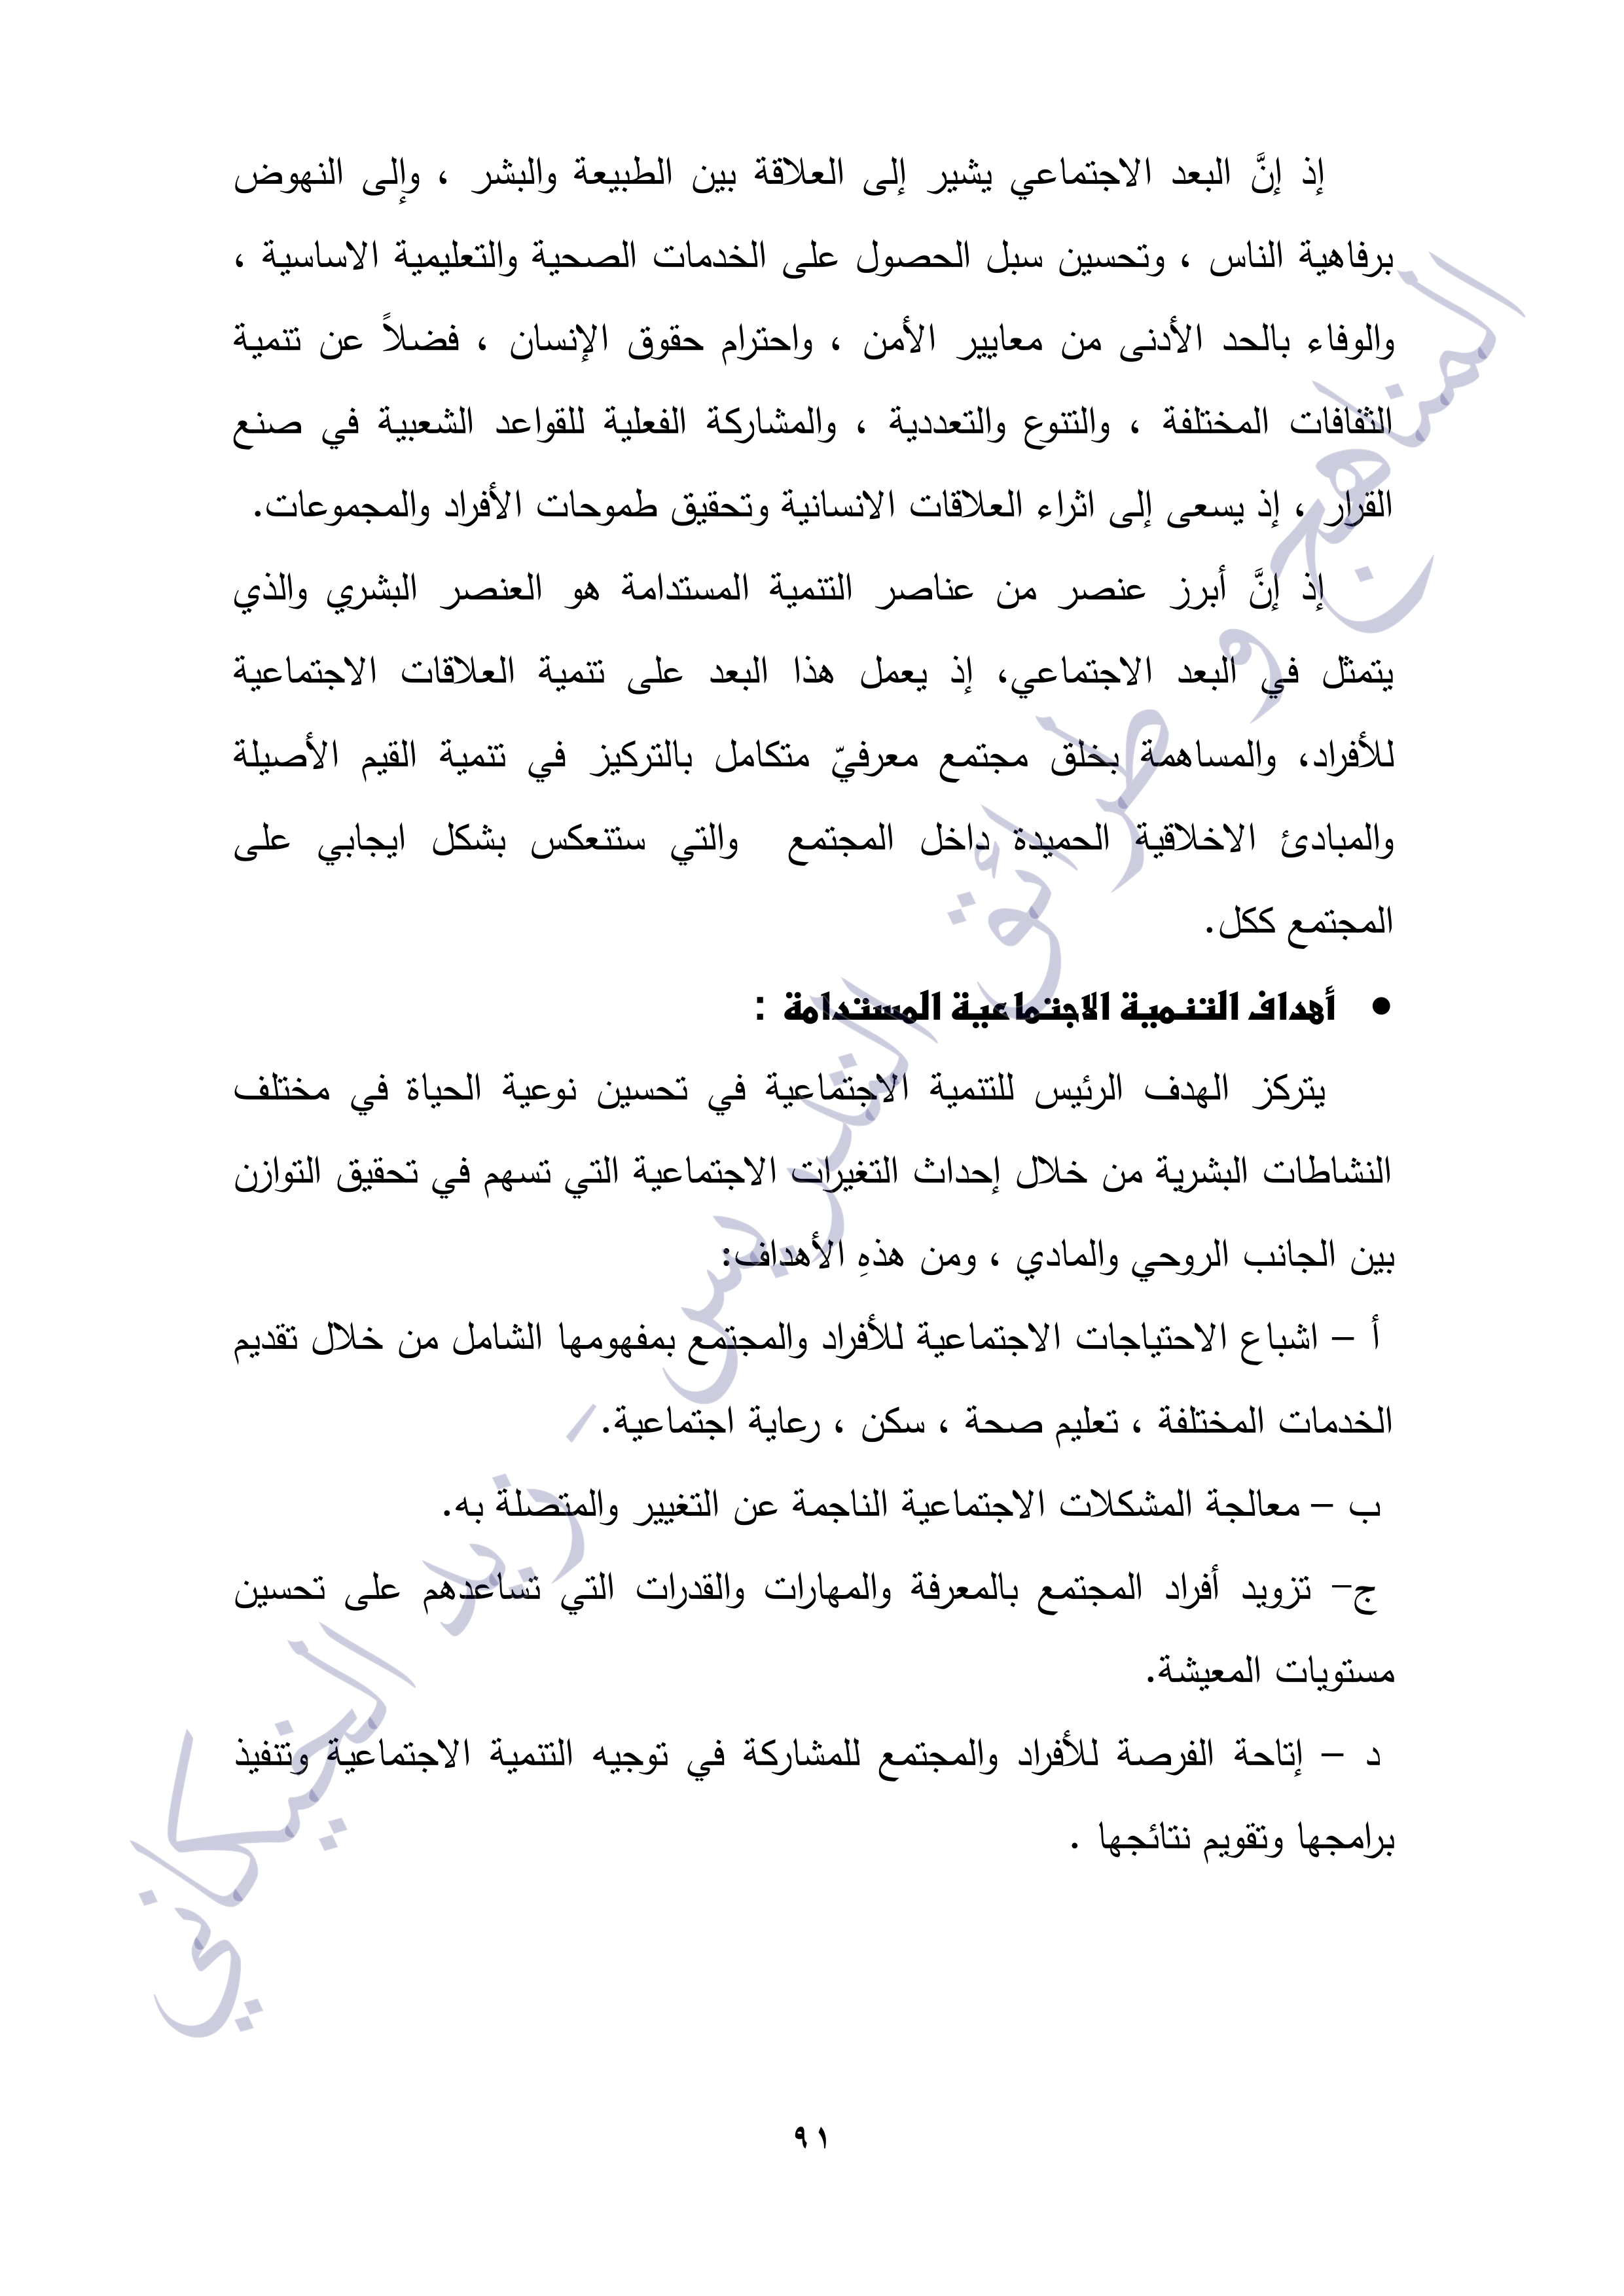 إذ إنَّ البعد الاجتماعي يشير إلى العلاقة بين الطبيعة والبشر ، وإلى النهوض
برفاهية الناس ، وتحسين سبل الحصول على الخدمات الصحية والتعليمية الاساسية ،
والوفاء بالحد الأدنى من معايير الأمن ، واحترام حقوق الإنسان ، فضلاً عن تنمية
الثقافات المختلفة ، والتنوع والتعددية ، والمشاركة الفعلية للقواعد الشعبية في صنع
القرار ، إذ يسعى إلى اثراء العلاقات الانسانية وتحقيق طموحات الأفراد والمجموعات.
إذ إنَّ أبرز عنصر من عناصر التنمية المستدامة هو العنصر البشري والذي
يتمثل في البعد الاجتماعي، إذ يعمل هذا البعد على تنمية العلاقات الاجتماعية
للأفراد، والمساهمة بخلق مجتمع معرفيّ متكامل بالتركيز في تنمية القيم الأصيلة
والمبادئ الاخلاقية الحميدة داخل المجتمع والتي ستنعكس بشكل ايجابي على
المجتمع ككل.
• أهداف التنمية الاجتماعية المستدامة :
يتركز الهدف الرئيس للتنمية الاجتماعية في تحسين نوعية الحياة في مختلف
النشاطات البشرية من خلال إحداث التغيرات الاجتماعية التي تسهم في تحقيق التوازن
بين الجانب الروحي والمادي ، ومن هذهِ الأهداف:
أ – اشباع الاحتياجات الاجتماعية للأفراد والمجتمع بمفهومها الشامل من خلال تقديم
الخدمات المختلفة ، تعليم صحة ، سكن ، رعاية اجتماعية.
ب – معالجة المشكلات الاجتماعية الناجمة عن التغيير والمتصلة به.
ج– تزويد أفراد المجتمع بالمعرفة والمهارات والقدرات التي تساعدهم على تحسين
مستويات المعيشة.
د – إتاحة الفرصة للأفراد والمجتمع للمشاركة في توجيه التنمية الاجتماعية وتنفيذ
برامجها وتقويم نتائجها .
المناهج و طرائق التدريس - زيد الخيكاني
٩١